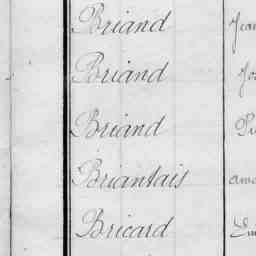 Briand
Briand
Briand
Briantais
Bricard